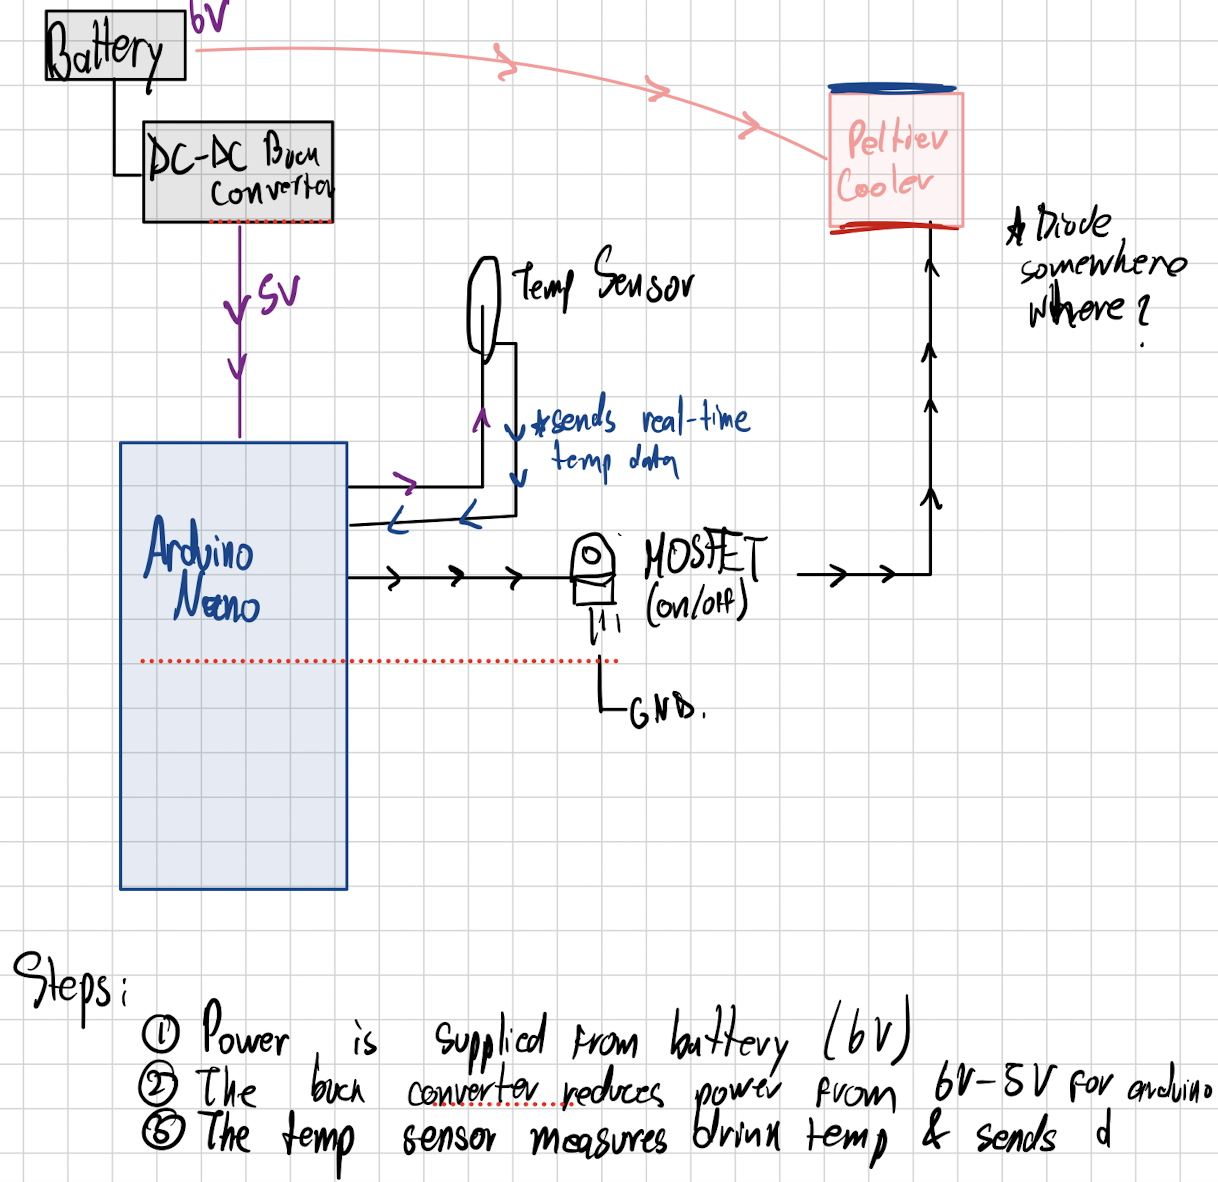 6V
Battery
DC-DC Buck
Converter
5V
Peltier
Cooler
* Diode
somewhere
where?
Temp Sensor
*sends real-time
temp data
Arduino
Nano
MOSFET
(on/off)
GND.
Steps:
① Power is supplied from battery (6V)
② The buck converter reduces power from 6V-5V for arduino
③ The temp sensor measures drink temp & sends d